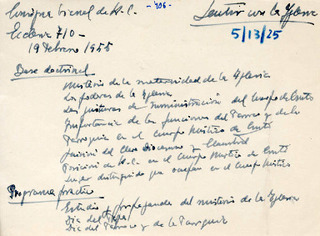 Consigna bienal de A.C.
- 406 -
Sentir con la Iglesia
Eclesia 710 -
5/13/25
19 Febrero 1955
Base doctrinal
Misterio de la maternidad de la Iglesia
Los poderes de la Iglesia
Las justuras de suministración del Cuerpo de Cristo
Importancia de las funciones del Párroco y de la
Parroquia en el Cuerpo Místico de Cristo
Función del Clero Diocesano y
Posición de A.C. en el Cuerpo Místico de Cristo
Lugar distinguido que ocupan en el Cuerpo Místico
Programa práctico
Estudio y propaganda del misterio de la Iglesia
Día del Papa
Día del Párroco y de la Parroquia